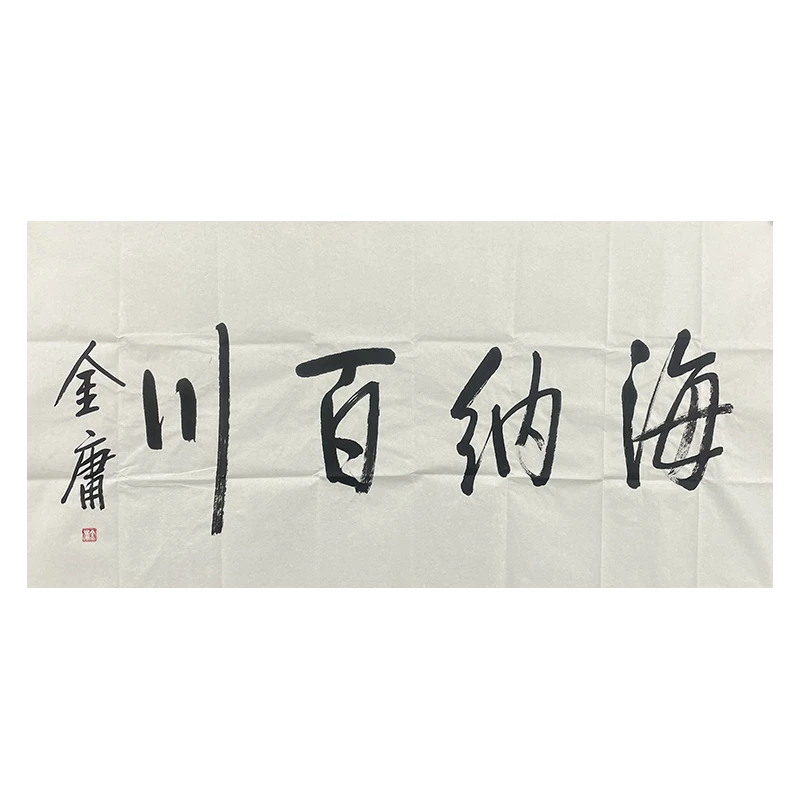 海纳百川
金庸